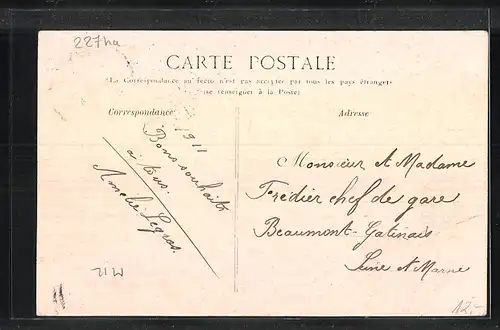 227ha
CARTE POSTALE
"La Correspondance au recto n'est pas acceptée par tous les pays étrangers
(se renseigner à la Poste)
Correspondance
Adresse
1911
Bons souhaits
à tous.
Amélie Legras.
Monsieur et Madame
Frédier chef de gare
Beaumont-Gatinais
Seine et Marne
21W
12,-